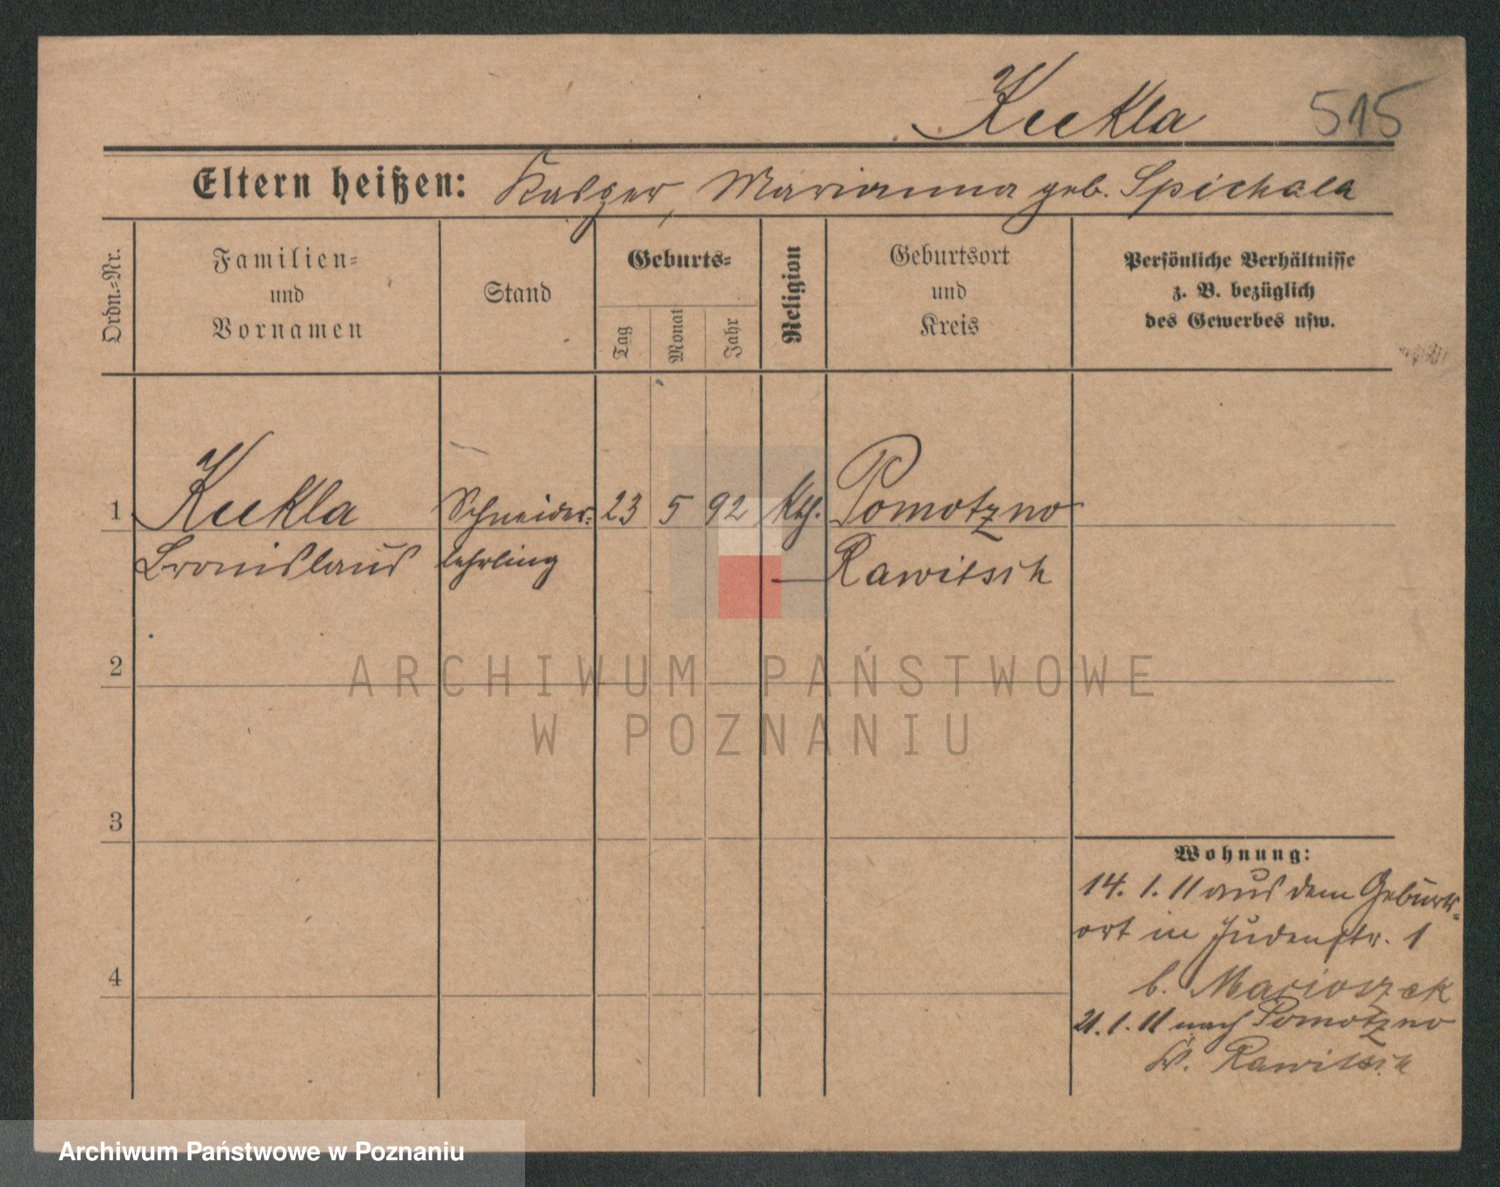 Kukla 515
Eltern heißen: Kasper, Marianna geb. Spichala
Ordn.-Nr.
Familien-
und
Vornamen
Stand
Geburts-
Tag
Monat
Jahr
Religion
Geburtsort
und
Kreis
Persönliche Verhältnisse
z. B. bezüglich
des Gewerbes usw.
1 Kukla Schneider- 23 5 92 kth. Pomotzno
Bronislaus lehrling Rawitsch
2
3
4
Wohnung:
14. 1. 11 aus dem Geburts-
ort in Judenstr. 1
b. Marioszek
21. 1. 11 nach Pomotzno
Kr. Rawitsch
ARCHIWUM PAŃSTWOWE
W POZNANIU
Archiwum Państwowe w Poznaniu